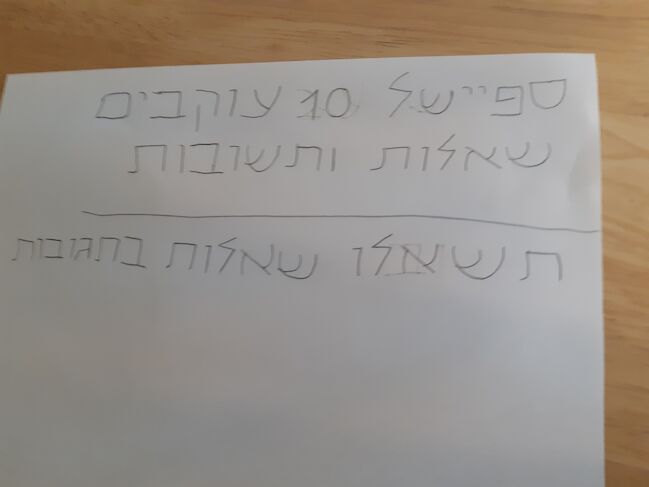 ספיישל 10 עוקבים
שאלות ותשובות
תשאלו שאלות בתגובות